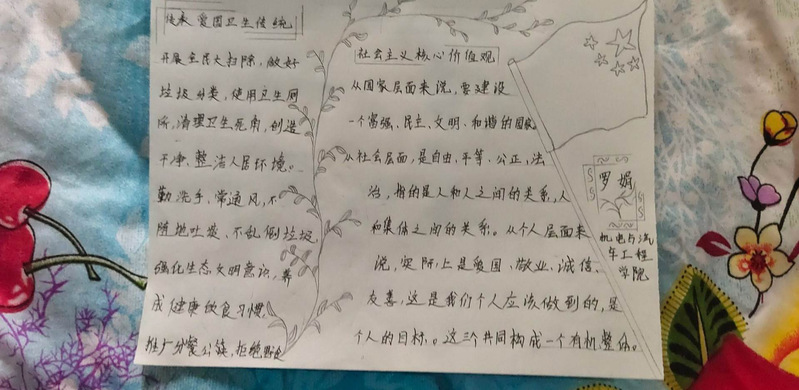 传承爱国卫生传统
开展全民大扫除,做好
垃圾分类,使用卫生厕
所,清理卫生死角,创造
干净、整洁人居环境。
勤洗手、常通风,不
随地吐痰、不乱倒垃圾,
强化生态文明意识,养
成健康饮食习惯,
推广分餐公筷,拒绝野
社会主义核心价值观
从国家层面来说,要建设
一个富强、民主、文明、和谐的国家,
从社会层面,是自由、平等、公正、法
治,指的是人和人之间的关系,人
和集体之间的关系。从个人层面来
说,实际上是爱国、敬业、诚信、
友善,这是我们个人应该做到的,是
个人的目标。这三个共同构成一个有机整体。
罗娟
机电与汽
车工程
学院